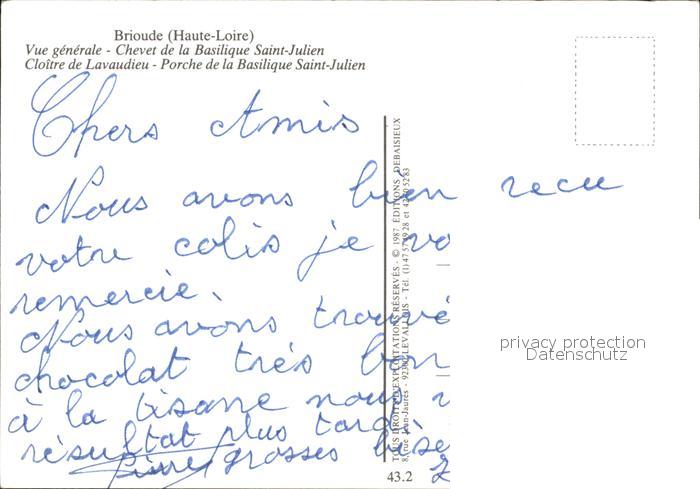 Brioude (Haute-Loire)
Vue générale - Chevet de la Basilique Saint-Julien
Cloître de Lavaudieu - Porche de la Basilique Saint-Julien
Chers Amis
Nous avons bien recu
votre colis je vo
remercie.
Nous avons trouvé
chocolat trés bon
à la tisane nous
résultat plus tard
grosses bise
Pierre
TOUS DROITS D'EXPLOITATION RÉSERVÉS - © 1987 ÉDITIONS DEBAISIEUX
8, rue Jean-Jaurès - 92300 LEVALLOIS - Tél. (1)
privacy protection
Datenschutz
43.2